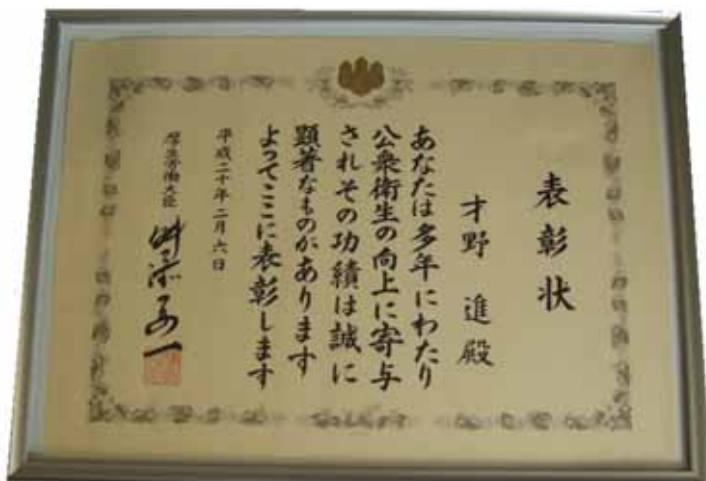 表彰状
才野 進 殿
あなたは多年にわたり
公衆衛生の向上に寄与
されその功績は誠に
顕著なものがあります
よってここに表彰します
平成二十年二月六日
厚生労働大臣
舛添要一